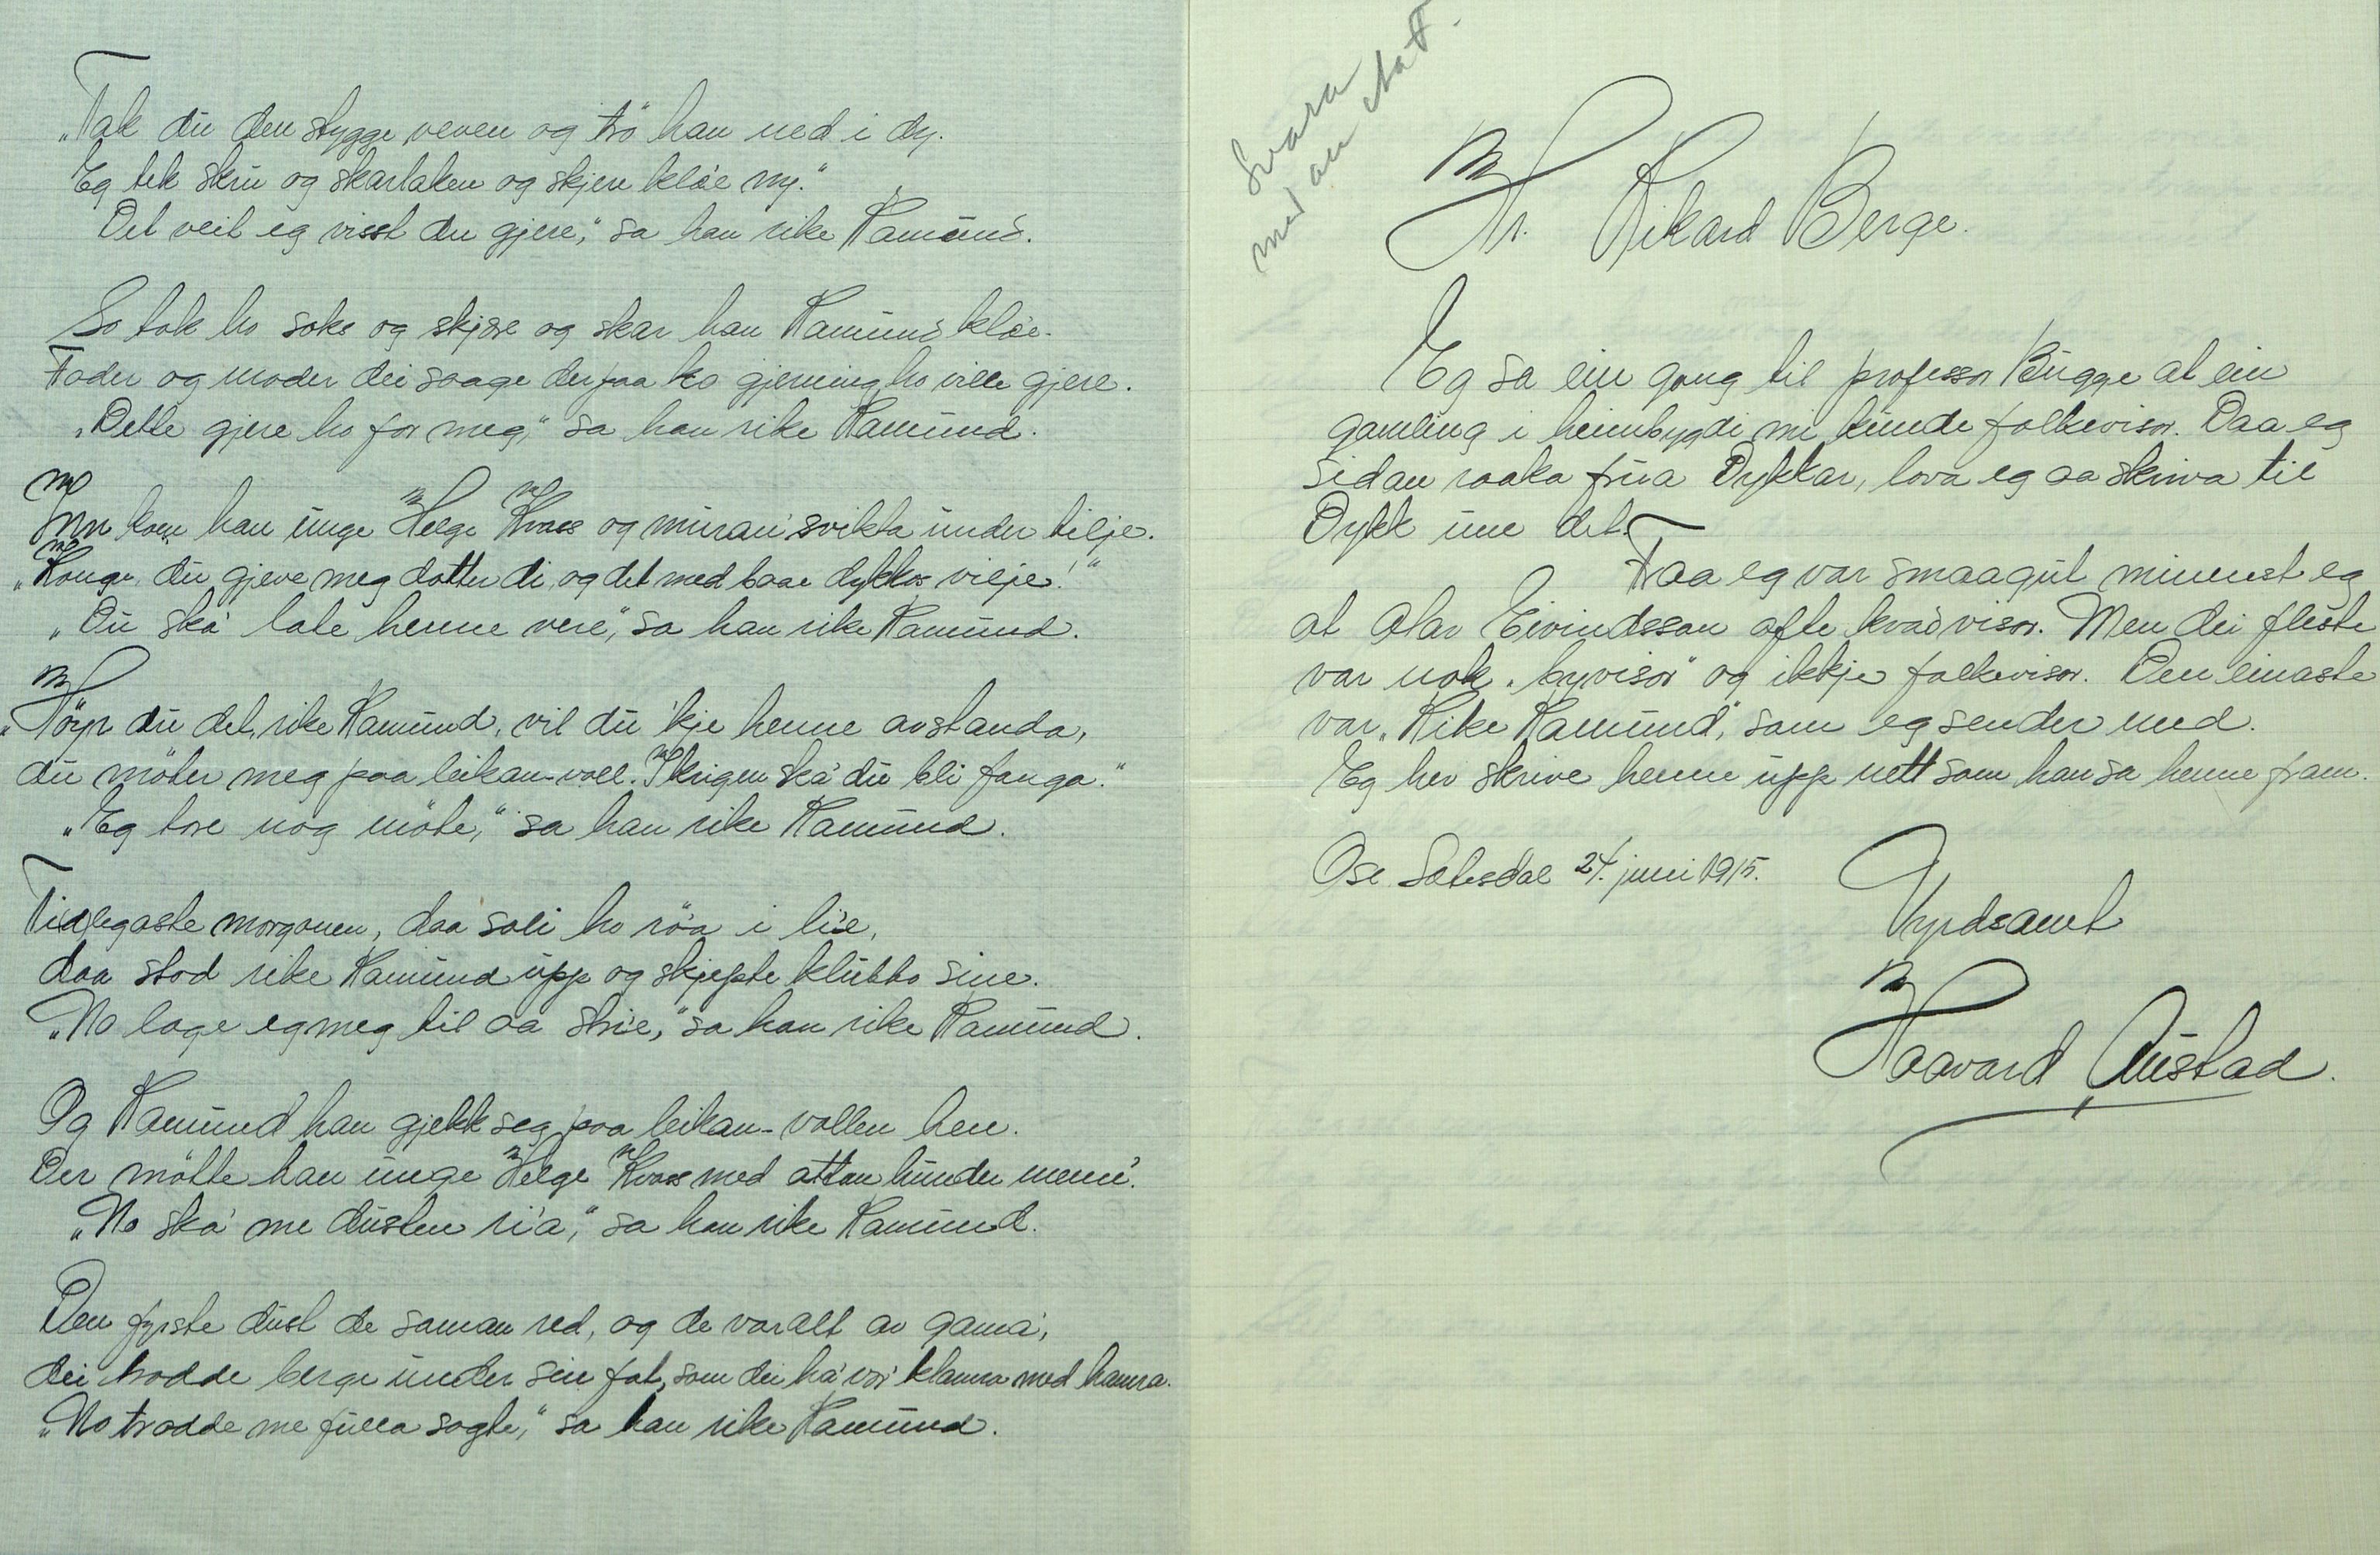 „Tak du den stygge veven og trø han ned i dy.
Eg tek skru og skarlaken og skjer klæe ny."
Det veit eg visst du gjere," sa han rike Ramund.
So tok ho soks og skjære og skar han Ramund klæe.
Fader og moder dei saage der paa ko gjerning ho ville gjere.
„Dette gjere ho for meg," sa han rike Ramund.
Inn kom han unge Helge Kvass og muran' svikta under tilje.
„Konge, du gjeve meg dotter di, og det med baae dykkos vilje!"
„Du ska' late henne vere," sa han rike Ramund.
„Høyr du det, rike Ramund, vil du 'kje henne avstanda,
du møter meg paa leikan-voll. I krigen ska' du bli fanga."
„Eg tore nog møte," sa han rike Ramund.
Tidlegaste morgonen, daa soli ho røa i lie,
daa stod rike Ramund upp og skjepte klubbo sine.
„No lage eg meg til aa stri'e," sa han rike Ramund.
Og Ramund han gjekk seg paa leikan-vollen hen.
Der møtte han unge Helge Kvass med attan hunder menn'.
„No ska' me dusten ri'a," sa han rike Ramund.
Den fyrste dust de saman red, og de var alt av gama',
dei trodde berge under sin fot, som dei ha' vor' klamra med hamra.
„No trodde me fulla sagte," sa han rike Ramund.
Svara
med an
Hr. Rikard Berge.
Eg sa ein gong til professor Bugge at ein
gamling i heimbygdi mi kunde folkevisor. Daa eg
sidan raaka frua Dykkar, lova eg aa skriva til
Dykk um det.
Fraa eg var smaagut minnest eg
at Olav Eivindsson ofte kvad visor. Men dei fleste
var nok „byvisor" og ikkje folkevisor. Den einaste
var „Rike Ramund", som eg sender med.
Eg hev skrive henne upp nett som han sa henne fram.
Ose Setesdal 24. juni 1915.
Vyrdsamt
Haavard Austad.